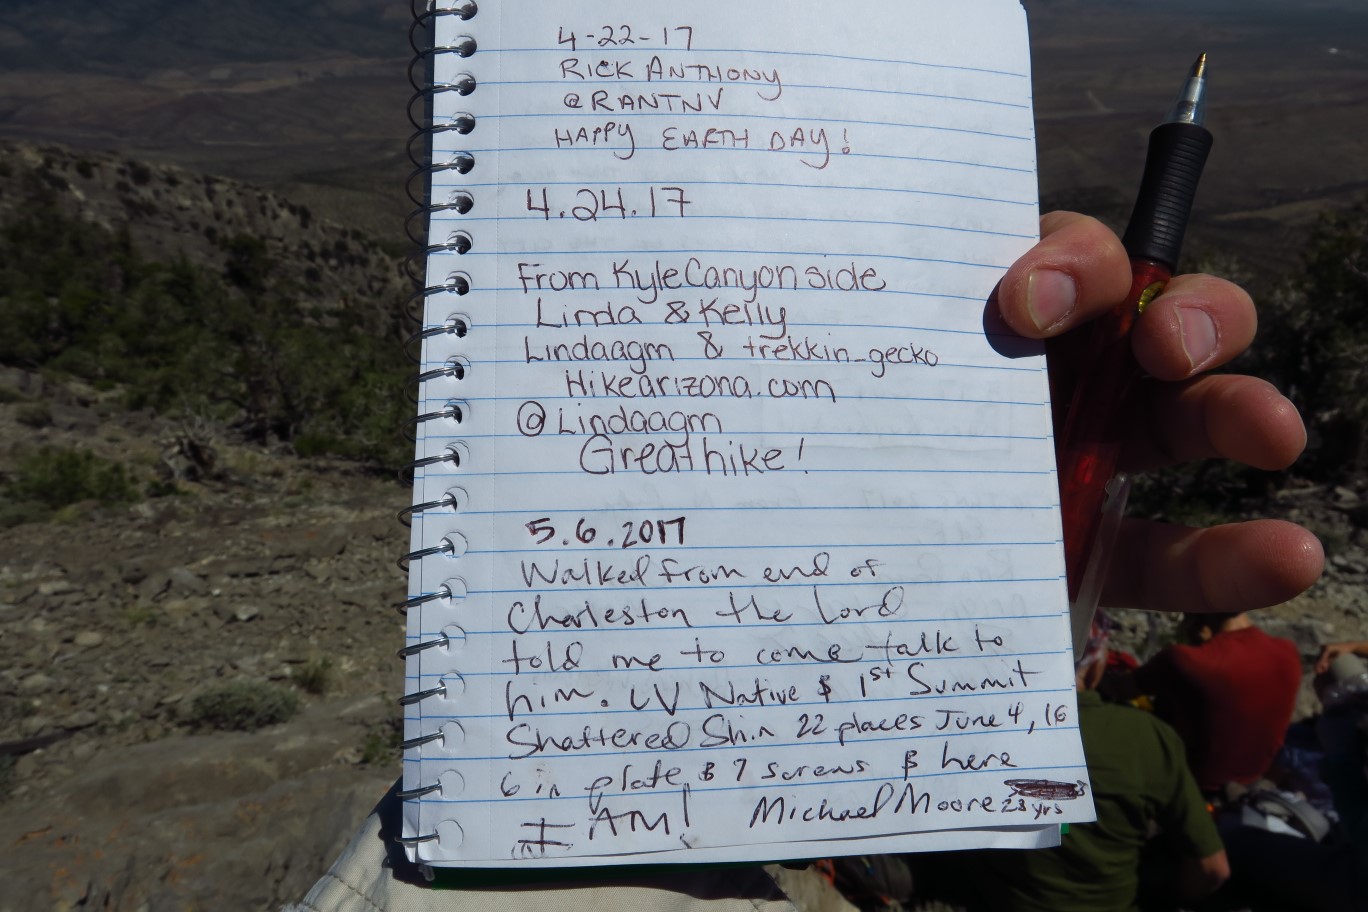 4-22-17
RICK ANTHONY
@RANTNV
HAPPY EARTH DAY!
4.24.17
From Kyle Canyon side
Linda & Kelly
Lindaagm & trekkin_gecko
Hikearizona.com
@Lindaagm
Great hike!
5.6.2017
Walked from end of
Charleston the Lord
told me to come talk to
him. LV Native & 1st Summit
Shattered Shin 22 places June 4, 16
6 in plate & 7 screws & here
I AM! Michael Moore 23 yrs